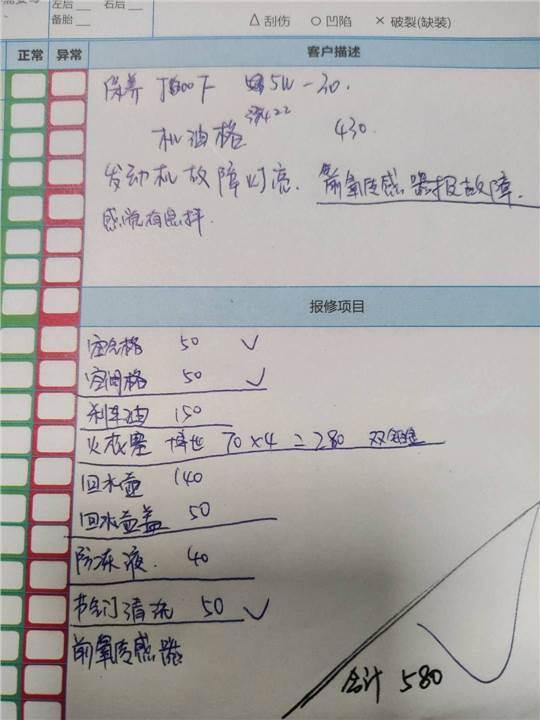 左后 右后
备胎 △ 刮伤 ○ 凹陷 × 破裂(缺装)
正常 异常 客户描述
保养 5W-30.
机油格 430.
发动机故障灯亮. 前氧传感器报故障.
感觉有点抖.
报修项目
空气格 50 ✓
空调格 50 ✓
刹车油 150
火花塞 博世 70×4=280 双铱金
回水壶 140
回水壶盖 50
防冻液. 40
节气门清洗 50 ✓
前氧传感器
合计 580